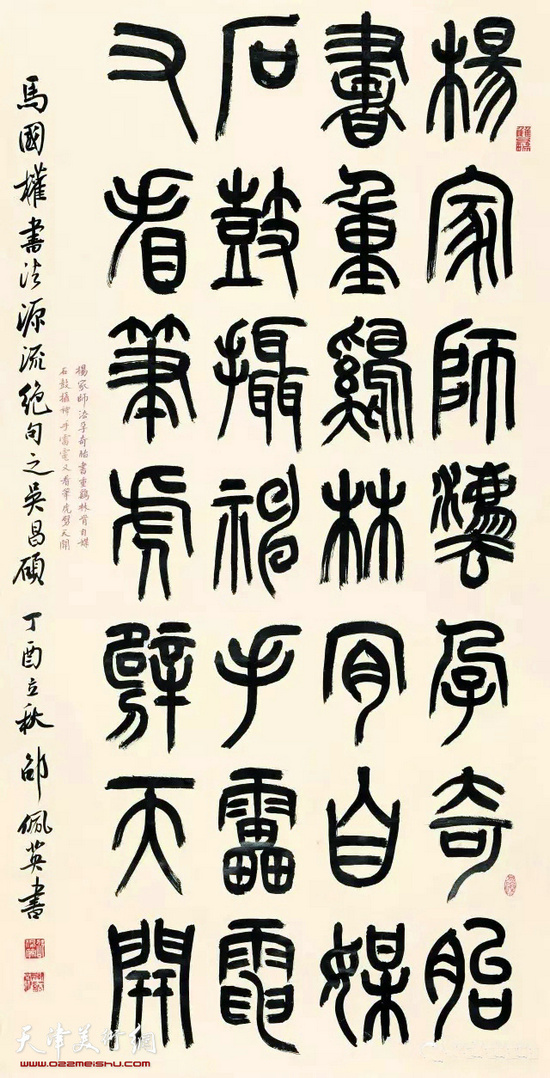 楊家師灋孕奇胎
書重鷄林肯自媒
石鼓攝神手靁電
又看筆虎劈天開
楊家師法孕奇胎書重鷄林肯自媒
石鼓攝神手雷電又看筆虎劈天開
馬國權書法源流絕句之吳昌碩 丁酉立秋 邵佩英書
天津美术网
www.022meishu.com